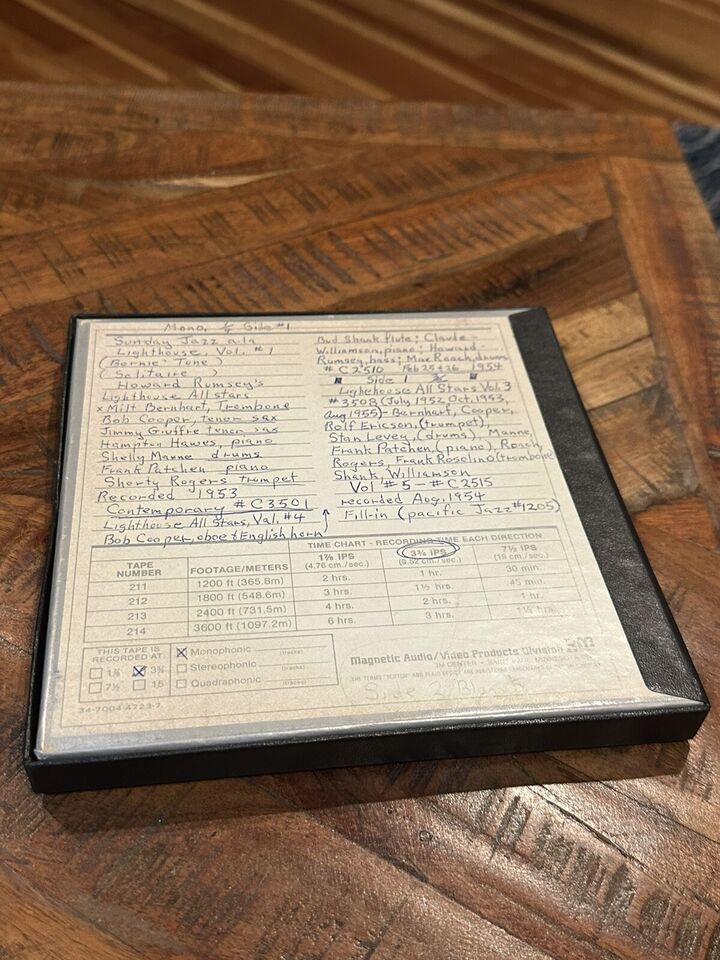 Mono, Side #1
Sunday Jazz a la
Lighthouse, Vol. #1
(Bernie's Tune)
(Solitaire)
Howard Rumsey's
Lighthouse All stars
x Milt Bernhart, Trombone
Bob Cooper, tenor sax
Jimmy Giuffre tenor sax
Hampton Hawes, piano
Shelly Manne drums
Frank Patchen piano
Shorty Rogers trumpet
Recorded 1953
Contemporary #C3501
Lighthouse All Stars, Vol. #4
Bob Cooper, oboe & English horn
Bud Shank flute; Claude
Williamson, piano; Howard
Rumsey, bass; Max Roach, drums
#C2510 Feb 25 & 26 1954
Side 1
Lighehouse All Stars Vol. 3
#3508 (July 1952, Oct. 1953,
Aug 1955) - Bernhart, Cooper,
Rolf Ericson, (trumpet),
Stan Levey, (drums), Manne,
Frank Patchen, (piano), Roach,
Rogers, Frank Rosolino (trombone
Shank, Williamson
Vol #5 - #C2515
recorded Aug, 1954
Fill-in (pacific Jazz #1205)
TIME CHART - RECORDING TIME EACH DIRECTION
TAPE NUMBER FOOTAGE/METERS 1⅞ IPS (4.76 cm./sec.) 3¾ IPS (9.52 cm./sec.) 7½ IPS (19 cm./sec.)
211 1200 ft (365.8m) 2 hrs. 1 hr. 30 min.
212 1800 ft (548.6m) 3 hrs. 1½ hrs. 45 min.
213 2400 ft (731.5m) 4 hrs. 2 hrs. 1 hr.
214 3600 ft (1097.2m) 6 hrs. 3 hrs. 1½ hrs.
THIS TAPE IS
RECORDED AT:
1⅞ 3¾
7½ 15
Monophonic (tracks)
Stereophonic (tracks)
Quadraphonic (tracks)
Magnetic Audio/Video Products Division 3M
3M CENTER
Side 2 Blank
34-7004-4723-7